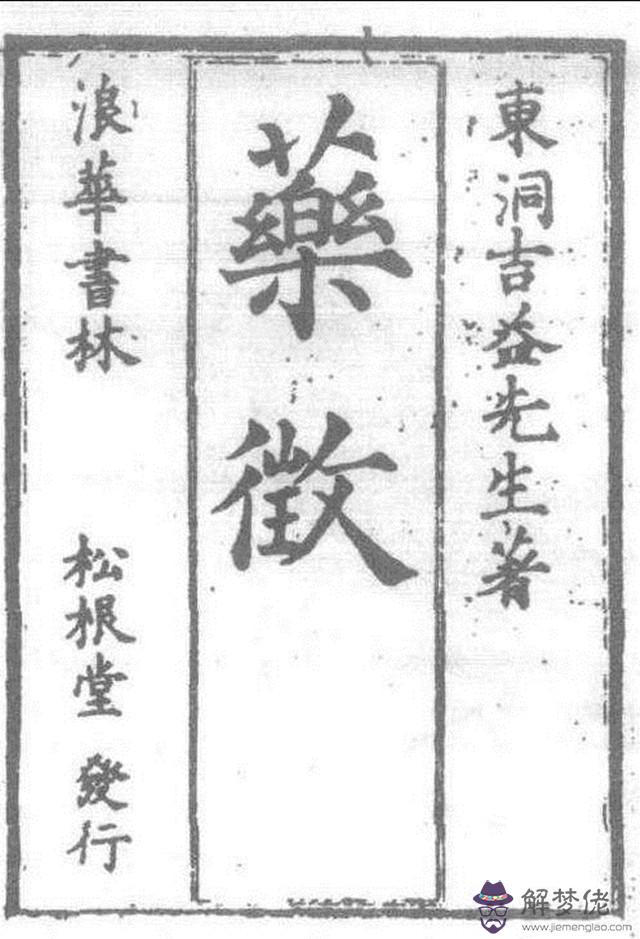 東洞吉益先生著
藥徵
浪華書林 松根堂 發行
解梦佬
www.jiemenglao.com